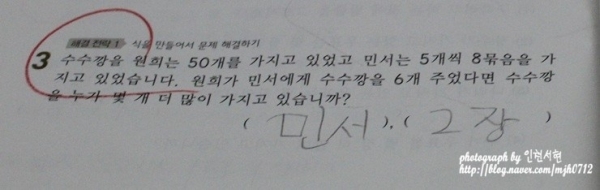 해결 전략 1 식을 만들어서 문제 해결하기
3 수수깡을 원희는 50개를 가지고 있었고 민서는 5개씩 8묶음을 가
지고 있었습니다. 원희가 민서에게 수수깡을 6개 주었다면 수수깡
을 누가 몇 개 더 많이 가지고 있습니까?
( 민서 ), ( 2장 )
photograph by 인현서현
http://blog.naver.com/mjh0712